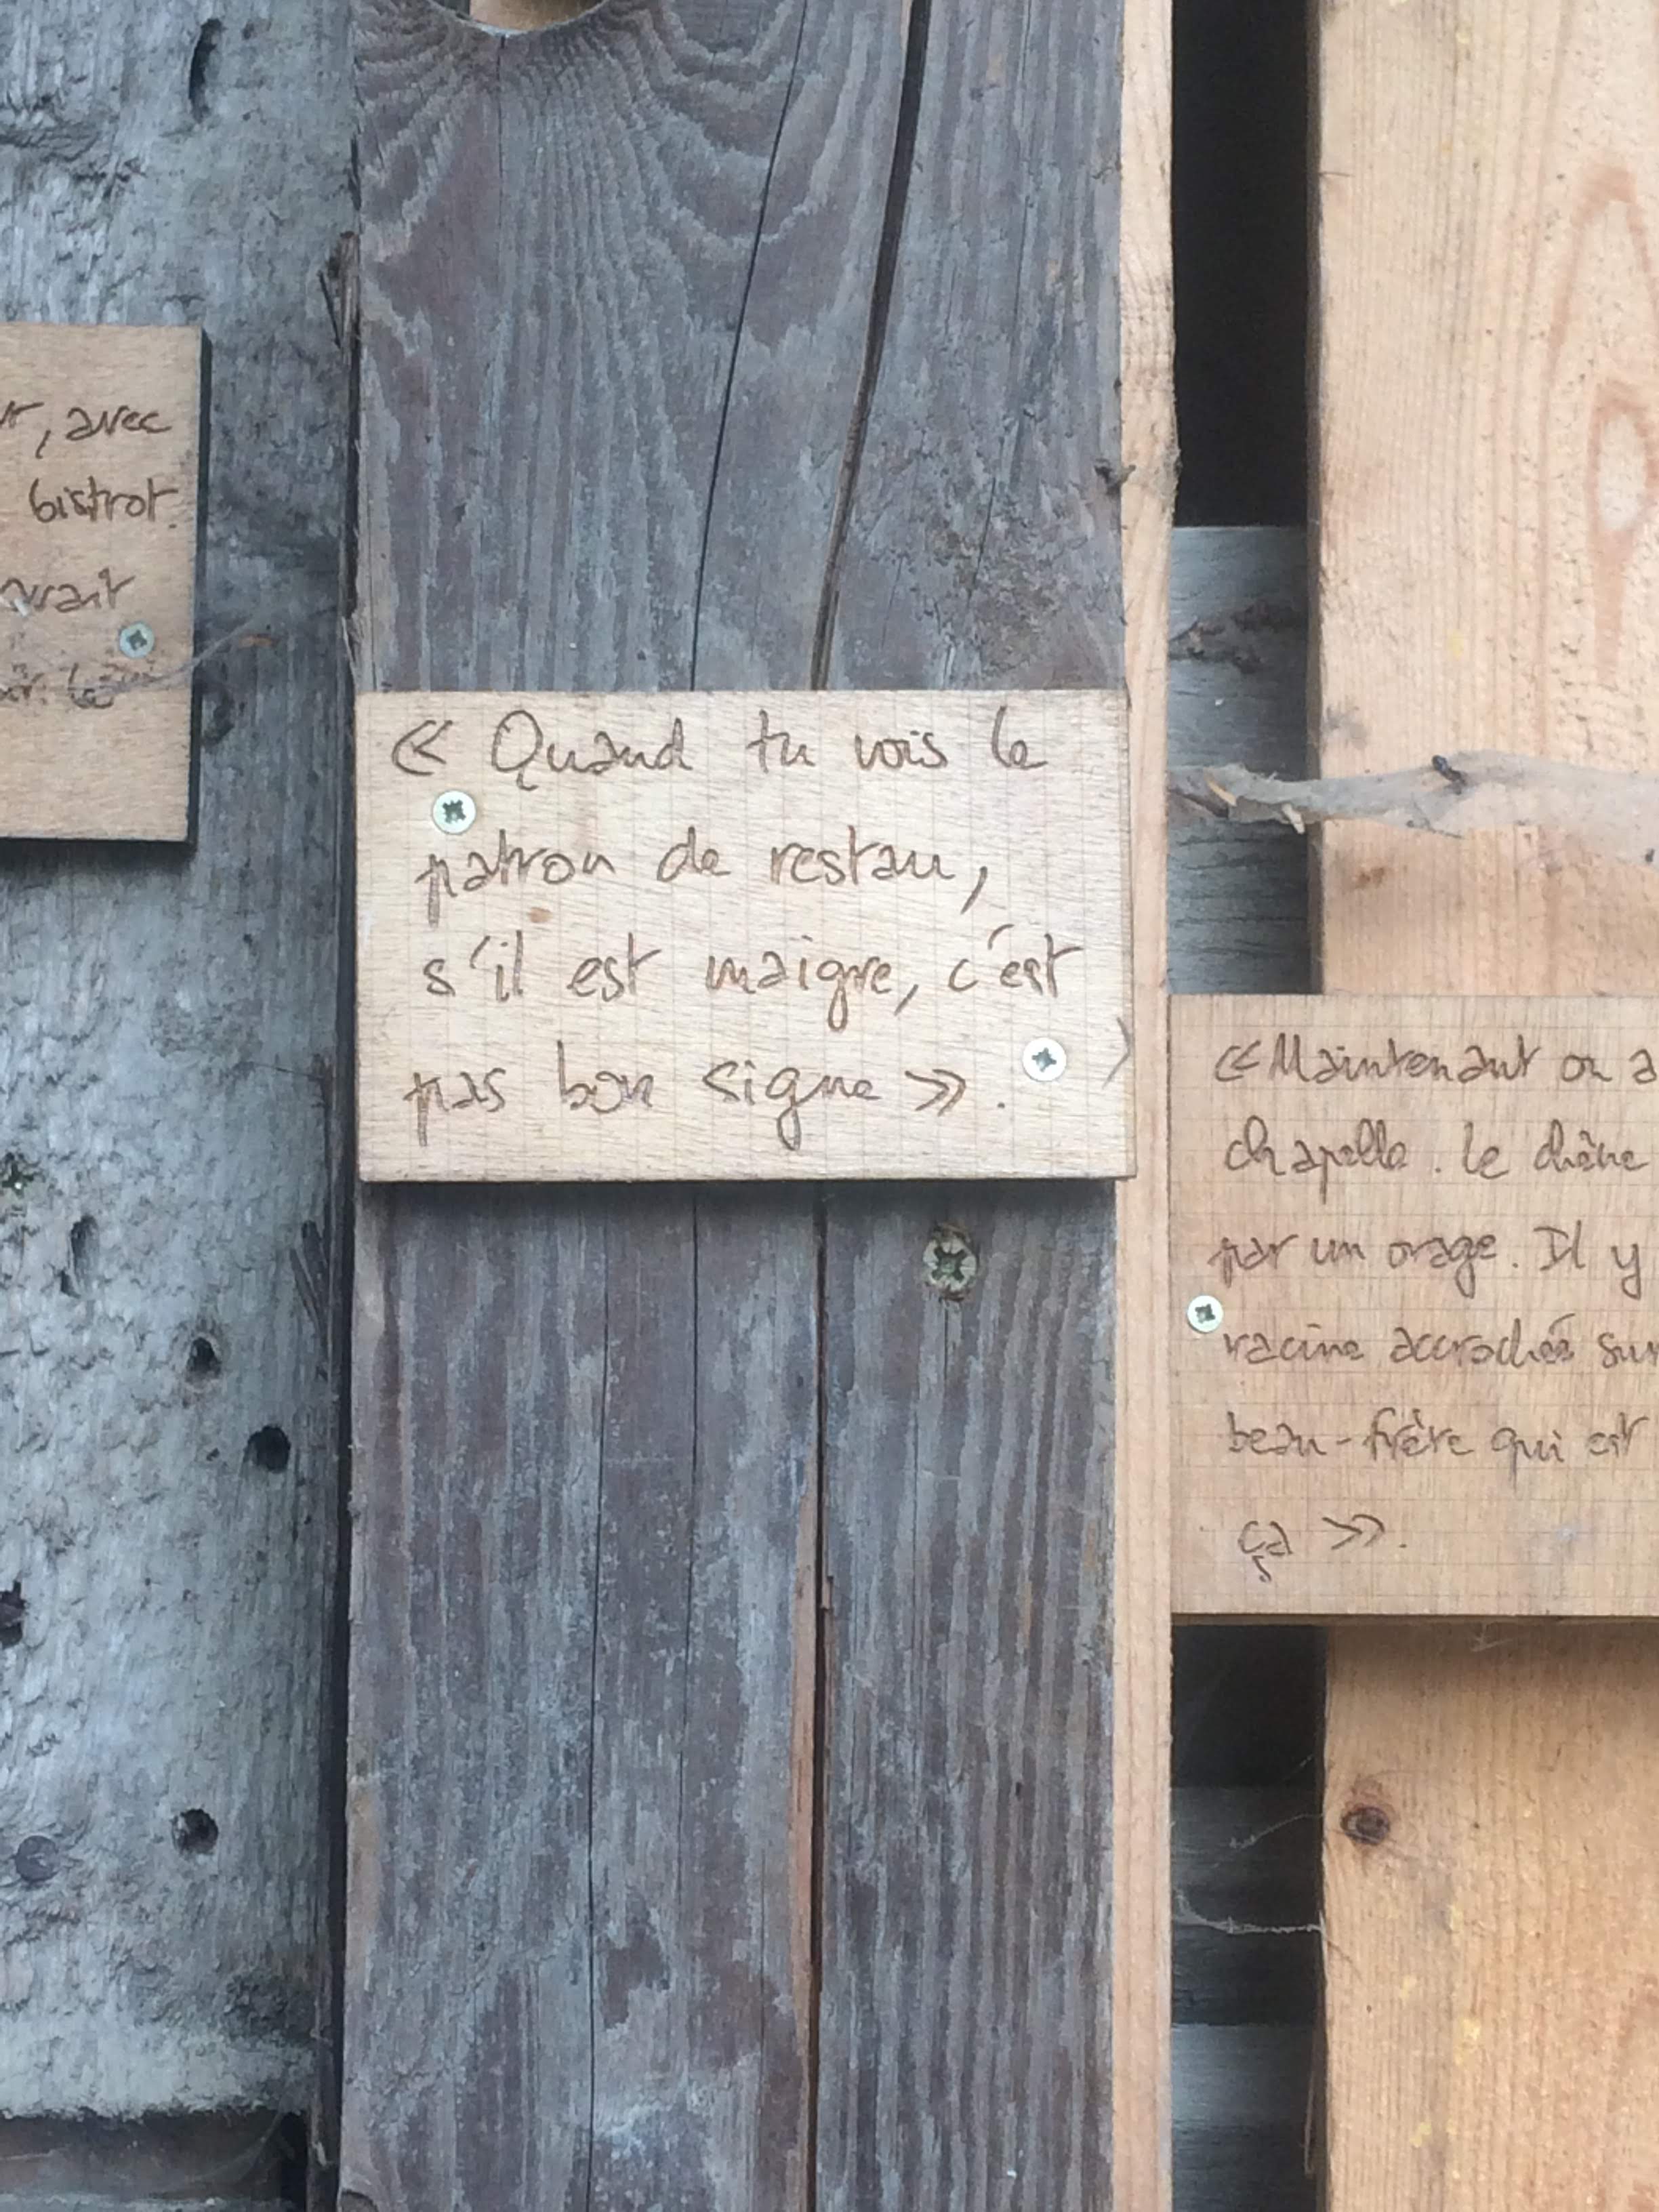 , avec
bistrot.
avait
« Quand tu vois le
patron de restau,
s'il est maigre, c'est
pas bon signe ».
« Maintenant on a
chapelle. Le chêne
par un orage. Il y
racine accrochée sur
beau-frère qui est
ça ».